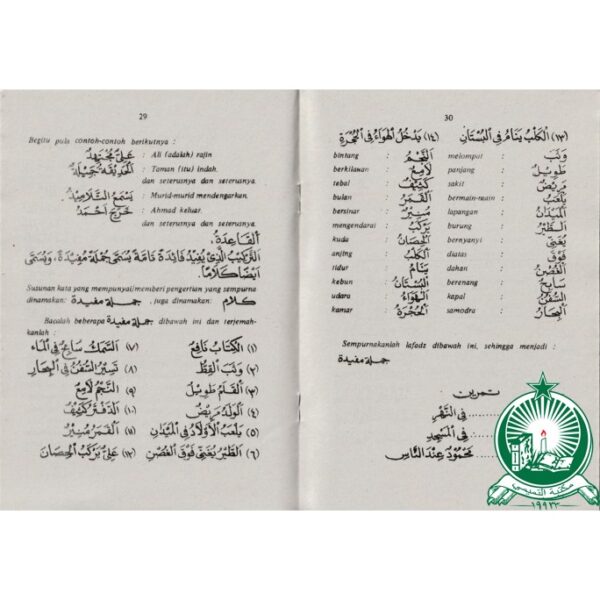 29
Begitu pula contoh-contoh berikutnya :
عَلِيٌّ مُجْتَهِدٌ : Ali (adalah) rajin
اَلْحَدِيْقَةُ جَمِيْلَةٌ : Taman (itu) indah.
dan seterusnya dan seterusnya.
يَسْمَعُ التَّلَامِيْذُ : Murid-murid mendengarkan.
خَرَجَ اَحْمَدُ : Ahmad keluar.
dan seterusnya dan seterusnya.
اَلْقَاعِدَةُ :
اَلتَّرْكِيْبُ الَّذِيْ يُفِيْدُ فَائِدَةً تَامَّةً يُسَمَّى جُمْلَةً مُفِيْدَةً، وَيُسَمَّى
اَيْضًا كَلَامًا.
Susunan kata yang mempunyai/memberi pengertian yang sempurna
dinamakan: جملة مفيدة , juga dinamakan: كلام
Bacalah beberapa جملة مفيدة dibawah ini dan terjemah-
kanlah :
(١) اَلْكِتَابُ نَافِعٌ (٧) اَلسَّمَكُ سَابِحٌ فِى الْمَاءِ
(٢) وَثَبَ الْقِطُّ (٨) تَسِيْرُ السُّفُنُ فِى الْبِحَارِ
(٣) اَلْقَلَمُ طَوِيْلٌ (٩) اَلنَّجْمُ لَامِعٌ
(٤) اَلْوَلَدُ مَرِيْضٌ (١٠) اَلدَّفْتَرُ كَثِيْفٌ
(٥) يَلْعَبُ الْاَوْلَادُ فِى الْمَيْدَانِ (١١) اَلْقَمَرُ مُنِيْرٌ
(٦) اَلطَّيْرُ يُغَنِّى فَوْقَ الْغُصْنِ (١٢) عَلِيٌّ يَرْكَبُ الْحِصَانَ
30
(١٣) اَلْكَلْبُ يَنَامُ فِى الْبُسْتَانِ (١٤) يَدْخُلُ الْهَوَاءُ فِى الْحُجْرَةِ
bintang اَلنَّجْمُ melompat وَثَبَ
berkilauan لَامِعٌ panjang طَوِيْلٌ
tebal كَثِيْفٌ sakit مَرِيْضٌ
bulan اَلْقَمَرُ bermain-main يَلْعَبُ
bersinar مُنِيْرٌ lapangan اَلْمَيْدَانُ
mengendarai يَرْكَبُ burung اَلطَّيْرُ
kuda اَلْحِصَانُ bernyanyi يُغَنِّى
anjing اَلْكَلْبُ diatas فَوْقَ
tidur يَنَامُ dahan اَلْغُصْنُ
kebun اَلْبُسْتَانُ berenang سَابِحٌ
udara اَلْهَوَاءُ kapal اَلسُّفُنُ
kamar اَلْحُجْرَةُ samodra اَلْبِحَارُ
Sempurnakanlah lafadz dibawah ini, sehingga menjadi :
جملة مفيدة
تمرين
........ فِى النَّهْرِ
........ فِى الْمَسْجِدِ
مَحْمُوْدٌ عِنْدَ النَّاسِ
مكتبة التميمي
١٩٩٣